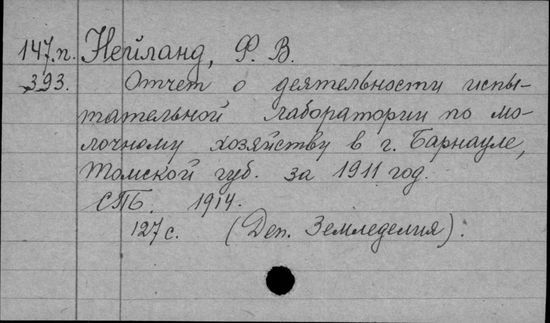 147.п. Нейланд, Ф. В.
393. Отчет о деятельности испы-
тательной лаборатории по мо-
лочному хозяйству в г. Барнауле,
Томской губ. за 1911 год.
СПБ. 1914.
127 с. (Деп. Земледелия).